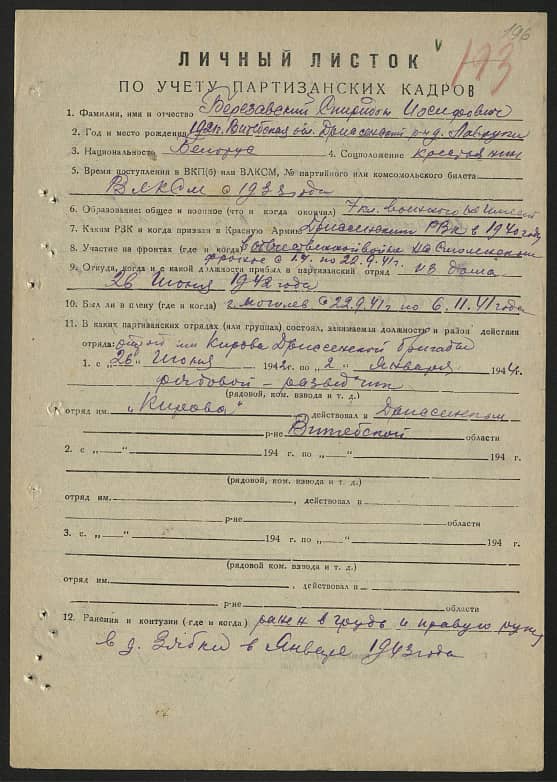 196
v
173
ЛИЧНЫЙ ЛИСТОК
ПО УЧЕТУ ПАРТИЗАНСКИХ КАДРОВ
1. Фамилия, имя и отчество Березавский Спиридон Иосифович
2. Год и место рождения 192 Витебская обл. Дриссенский р-н д.
3. Национальность Белорус 4. Соцположение крестьянин
5. Время поступления в ВКП(б) или ВЛКСМ, № партийного или комсомольского билета
ВЛКСМ с 1933 года
6. Образование: общее и военное (что и когда окончил) 7 кл. военного не имеет
7. Каким РЗК и когда призван в Красную Армию Дриссенским РВК в 1940 году
8. Участие на фронтах (где и когда) в отечественной войне на Смоленском
фронте с по 22.9.41г.
9. Откуда, когда и с какой должности прибыл в партизанский отряд из дома
26 Июня 1942 года
10. Был ли в плену (где и когда) г. Могилев с 22.9.41г по 6.11.41 года
11. В каких партизанских отрядах (или группах) состоял, занимаемая должность и район действия
отряда: отряд им Кирова Дриссенской бригады
1. с „26“ Июня 1942 г. по „2“ Января 1944 г.
рядовой – разведчик
(рядовой, ком. взвода и т. д.)
отряд им. „Кирова“ действовал в Дриссенском
р-не Витебской области
2. с „—“ 194 г. по „—“ 194 г.
(рядовой, ком. взвода и т. д.)
отряд им. , действовал в
р-не области
3. с „—“ 194 г. по „—“ 194 г.
(рядовой, ком. взвода и т. д.)
отряд им. , действовал в
р-не области
12. Ранения и контузии (где и когда) ранен в грудь и правую руку
в д. Зябки в Январе 1943 года